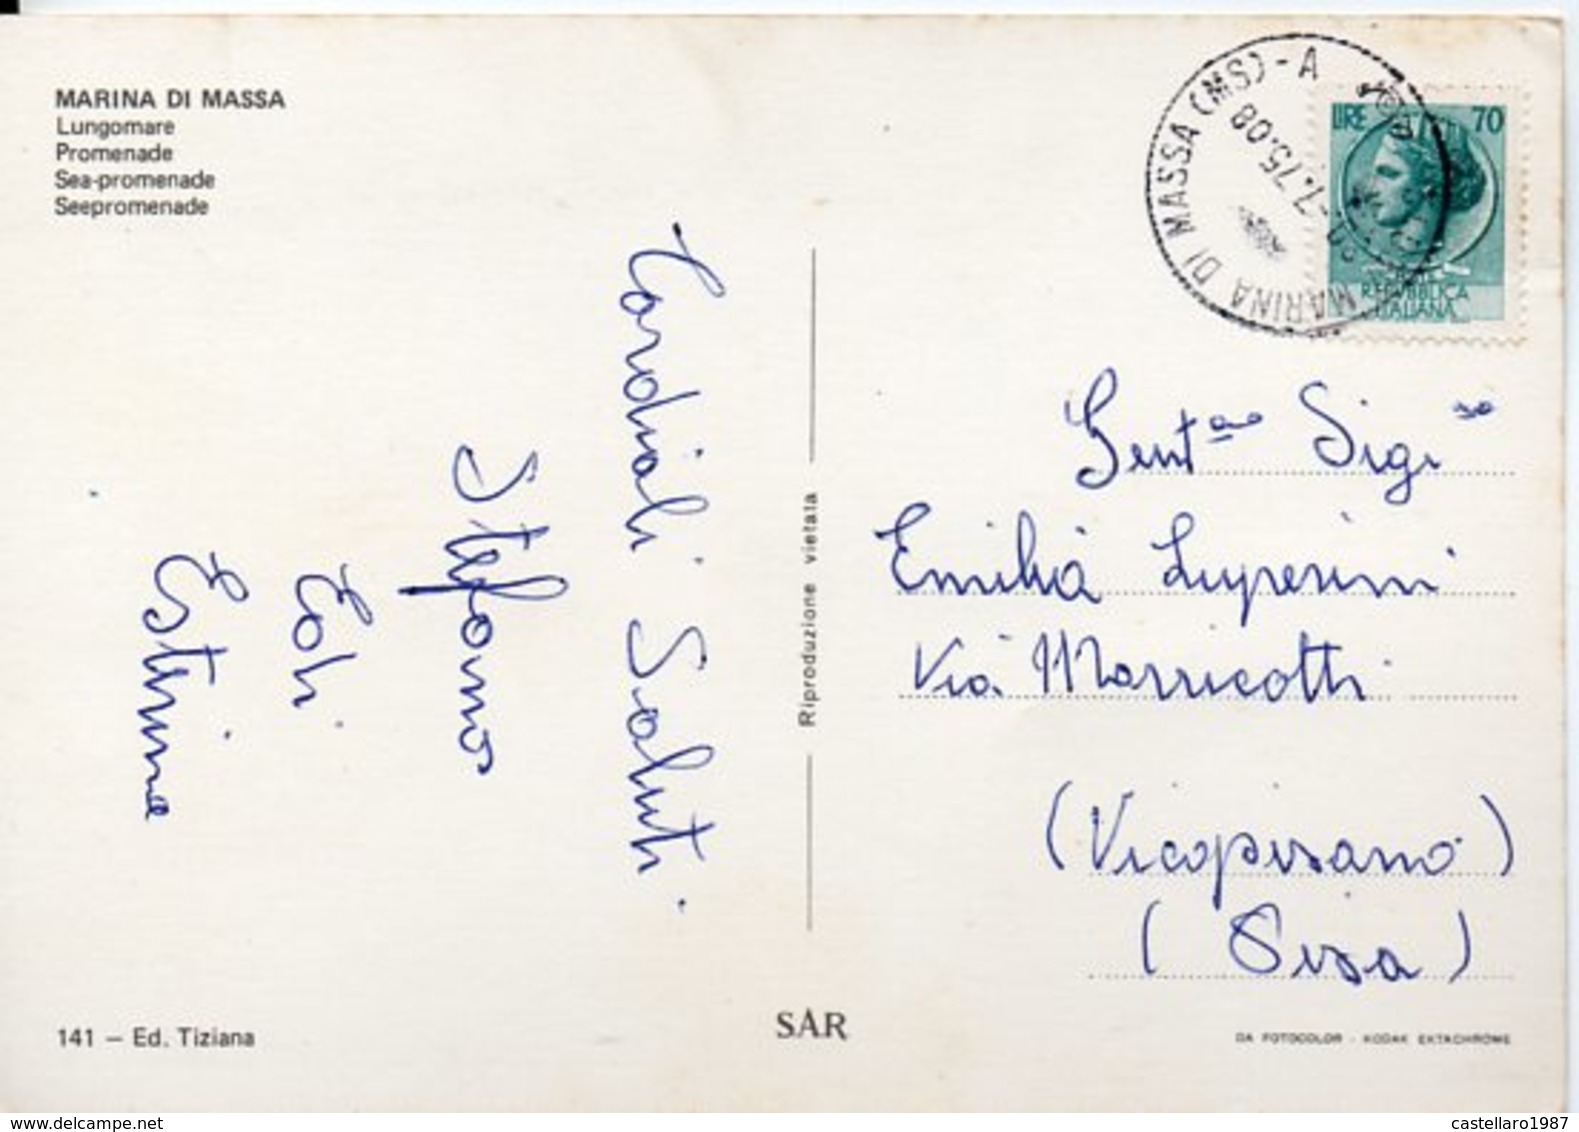 MARINA DI MASSA
Lungomare
Promenade
Sea-promenade
Seepromenade
Cordiali Saluti.
Stefano
Eoli
Esterina
141 – Ed. Tiziana
Riproduzione vietata
SAR
MARINA DI MASSA (MS) - A
-7.75.08
LIRE 70
REPUBBLICA
ITALIANA
Gent.ma Sig.
Emilia Luperini
Via Marricotti
(Vicopisano)
(Pisa)
DA FOTOCOLOR - KODAK EKTACHROME
castellaro1987